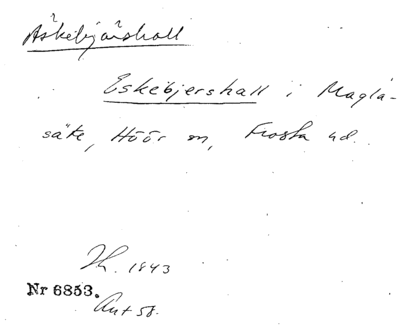 Äskebjärshall
Eskebjershall i Magla-
säte, Höör sn, Frosta hd.
Th. 1843
Nr 6853.
Ant 58.